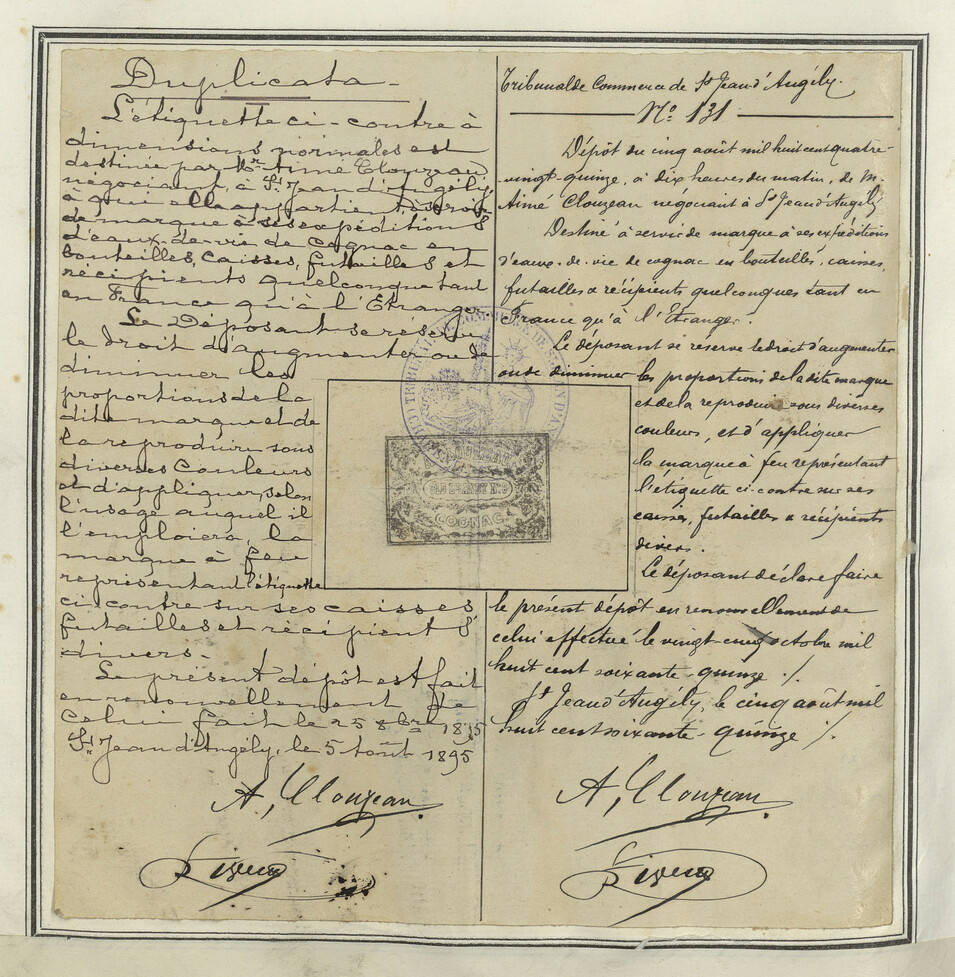 Duplicata
L'étiquette ci-contre à
dimensions normales est
destinée par Mr Aimé Clouzeau,
négociant, à St Jean d'Angély,
à qui elle appartient, à servir
de marque à ses expéditions
d'eaux-de-vie de Cognac en
bouteilles, caisses, futailles et
récipients quelconque tant
en France qu'à l'Etranger.
Le Déposant se réserve
le droit d'augmenter ou de
diminuer les
proportions de la
dite marque et de
la reproduire sous
diverses couleurs
et d'appliquer, selon
l'usage auquel il
l'emploiera, la
marque à feu
représentant l'étiquette
ci-contre sur ses caisses
futailles et récipients
divers.
Le présent dépôt est fait
en renouvellement de
celui fait le 25 8bre 1875
St Jean d'Angély, le 5 Août 1895
A, Clouzeau
Tribunal de Commerce de St Jean d'Angély.
No 131
Dépôt du cinq août mil huit cent quatre-
vingt-quinze, à dix heures du matin, de M.
Aimé Clouzeau négociant à St Jean d'Angély
Destiné à servir de marque à ses expéditions
d'eaux-de-vie de cognac en bouteilles, caisses,
futailles & récipients quelconques tant en
France qu'à l'Etranger.
Le déposant se réserve le droit d'augmenter
ou de diminuer les proportions de la dite marque
et de la reproduire sous diverses
couleurs, et d'appliquer
la marque à feu représentant
l'étiquette ci-contre sur ses
caisses, futailles & récipients
divers.
Le déposant déclare faire
le présent dépôt en renouvellement de
celui effectué le vingt-cinq octobre mil
huit cent soixante-quinze ./.
St Jean d'Angély, le cinq août mil
huit cent soixante-quinze ./.
A, Clouzeau
COGNAC